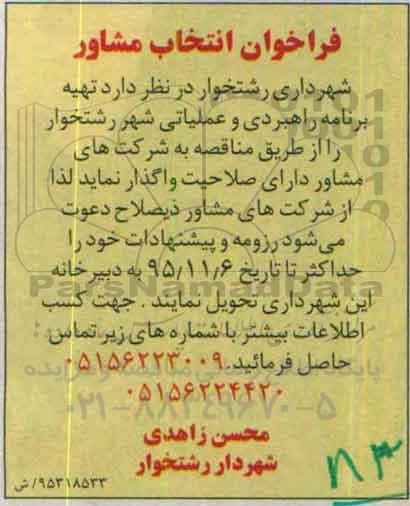 فراخوان انتخاب مشاور
شهرداری رشتخوار در نظر دارد تهیه
برنامه راهبردی و عملیاتی شهر رشتخوار
را از طریق مناقصه به شرکت های
مشاور دارای صلاحیت واگذار نماید لذا
از شرکت های مشاور ذیصلاح دعوت
می‌شود رزومه و پیشنهادات خود را
حداکثر تا تاریخ ۹۵/۱۱/۶ به دبیرخانه
این شهرداری تحویل نمایند . جهت کسب
اطلاعات بیشتر با شماره های زیر تماس
حاصل فرمائید. ۰۵۱۵۶۲۲۳۰۰۹
۰۵۱۵۶۲۲۴۴۲۰
محسن زاهدی
شهردار رشتخوار
۹۵۳۱۸۵۳۳/ ش
ParsNamadData
۰۲۱-۸۸۳۴۹۶۷۰-۵